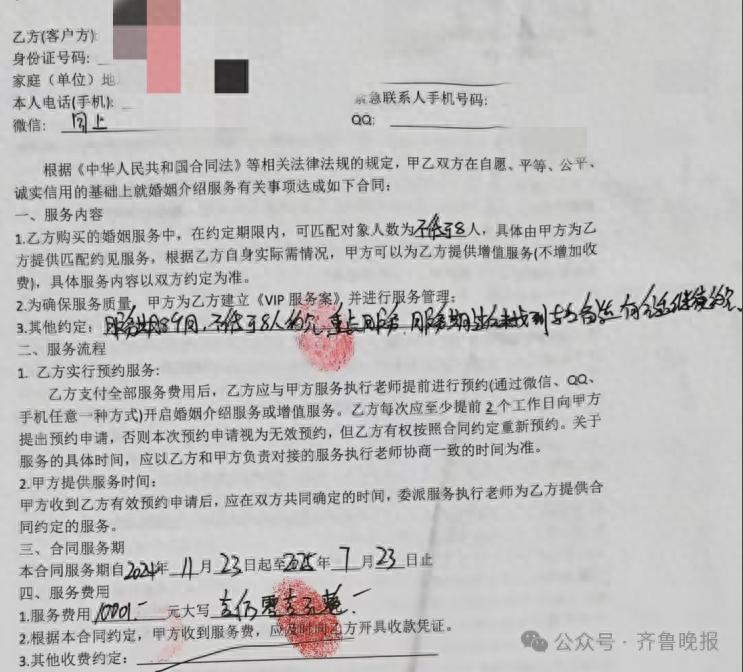 乙方(客户方):
身份证号码:
家庭（单位）地
本人电话(手机): 紧急联系人手机号码:
微信: 同上 QQ:
根据《中华人民共和国合同法》等相关法律法规的规定，甲乙双方在自愿、平等、公平、
诚实信用的基础上就婚姻介绍服务有关事项达成如下合同:
一、服务内容
1.乙方购买的婚姻服务中，在约定期限内，可匹配对象人数为不低于8人，具体由甲方为乙
方提供匹配约见服务，根据乙方自身实际需情况，甲方可以为乙方提供增值服务(不增加收
费)，具体服务内容以双方约定为准。
2.为确保服务质量，甲方为乙方建立《VIP 服务案》并进行服务管理;
3.其他约定: 服务期8个月，不低于8人约见
二、服务流程
1. 乙方实行预约服务:
乙方支付全部服务费用后，乙方应与甲方服务执行老师提前进行预约(通过微信、QQ、
手机任意一种方式)开启婚姻介绍服务或增值服务。乙方每次应至少提前 2 个工作日向甲方
提出预约申请，否则本次预约申请视为无效预约，但乙方有权按照合同约定重新预约。关于
服务的具体时间，应以乙方和甲方负责对接的服务执行老师协商一致的时间为准。
2.甲方提供服务时间:
甲方收到乙方有效预约申请后，应在双方共同确定的时间，委派服务执行老师为乙方提供合
同约定的服务。
三、合同服务期
本合同服务期自2024年 11 月 23 日起至2025年 7 月 23 日止
四、服务费用
1.服务费用 10001.- 元大写
2.根据本合同约定，甲方收到服务费，应及时向乙方开具收款凭证。
3.其他收费约定:
公众号·齐鲁晚报